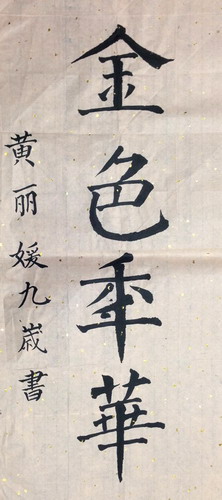 金色年華
黃丽媛九歲書